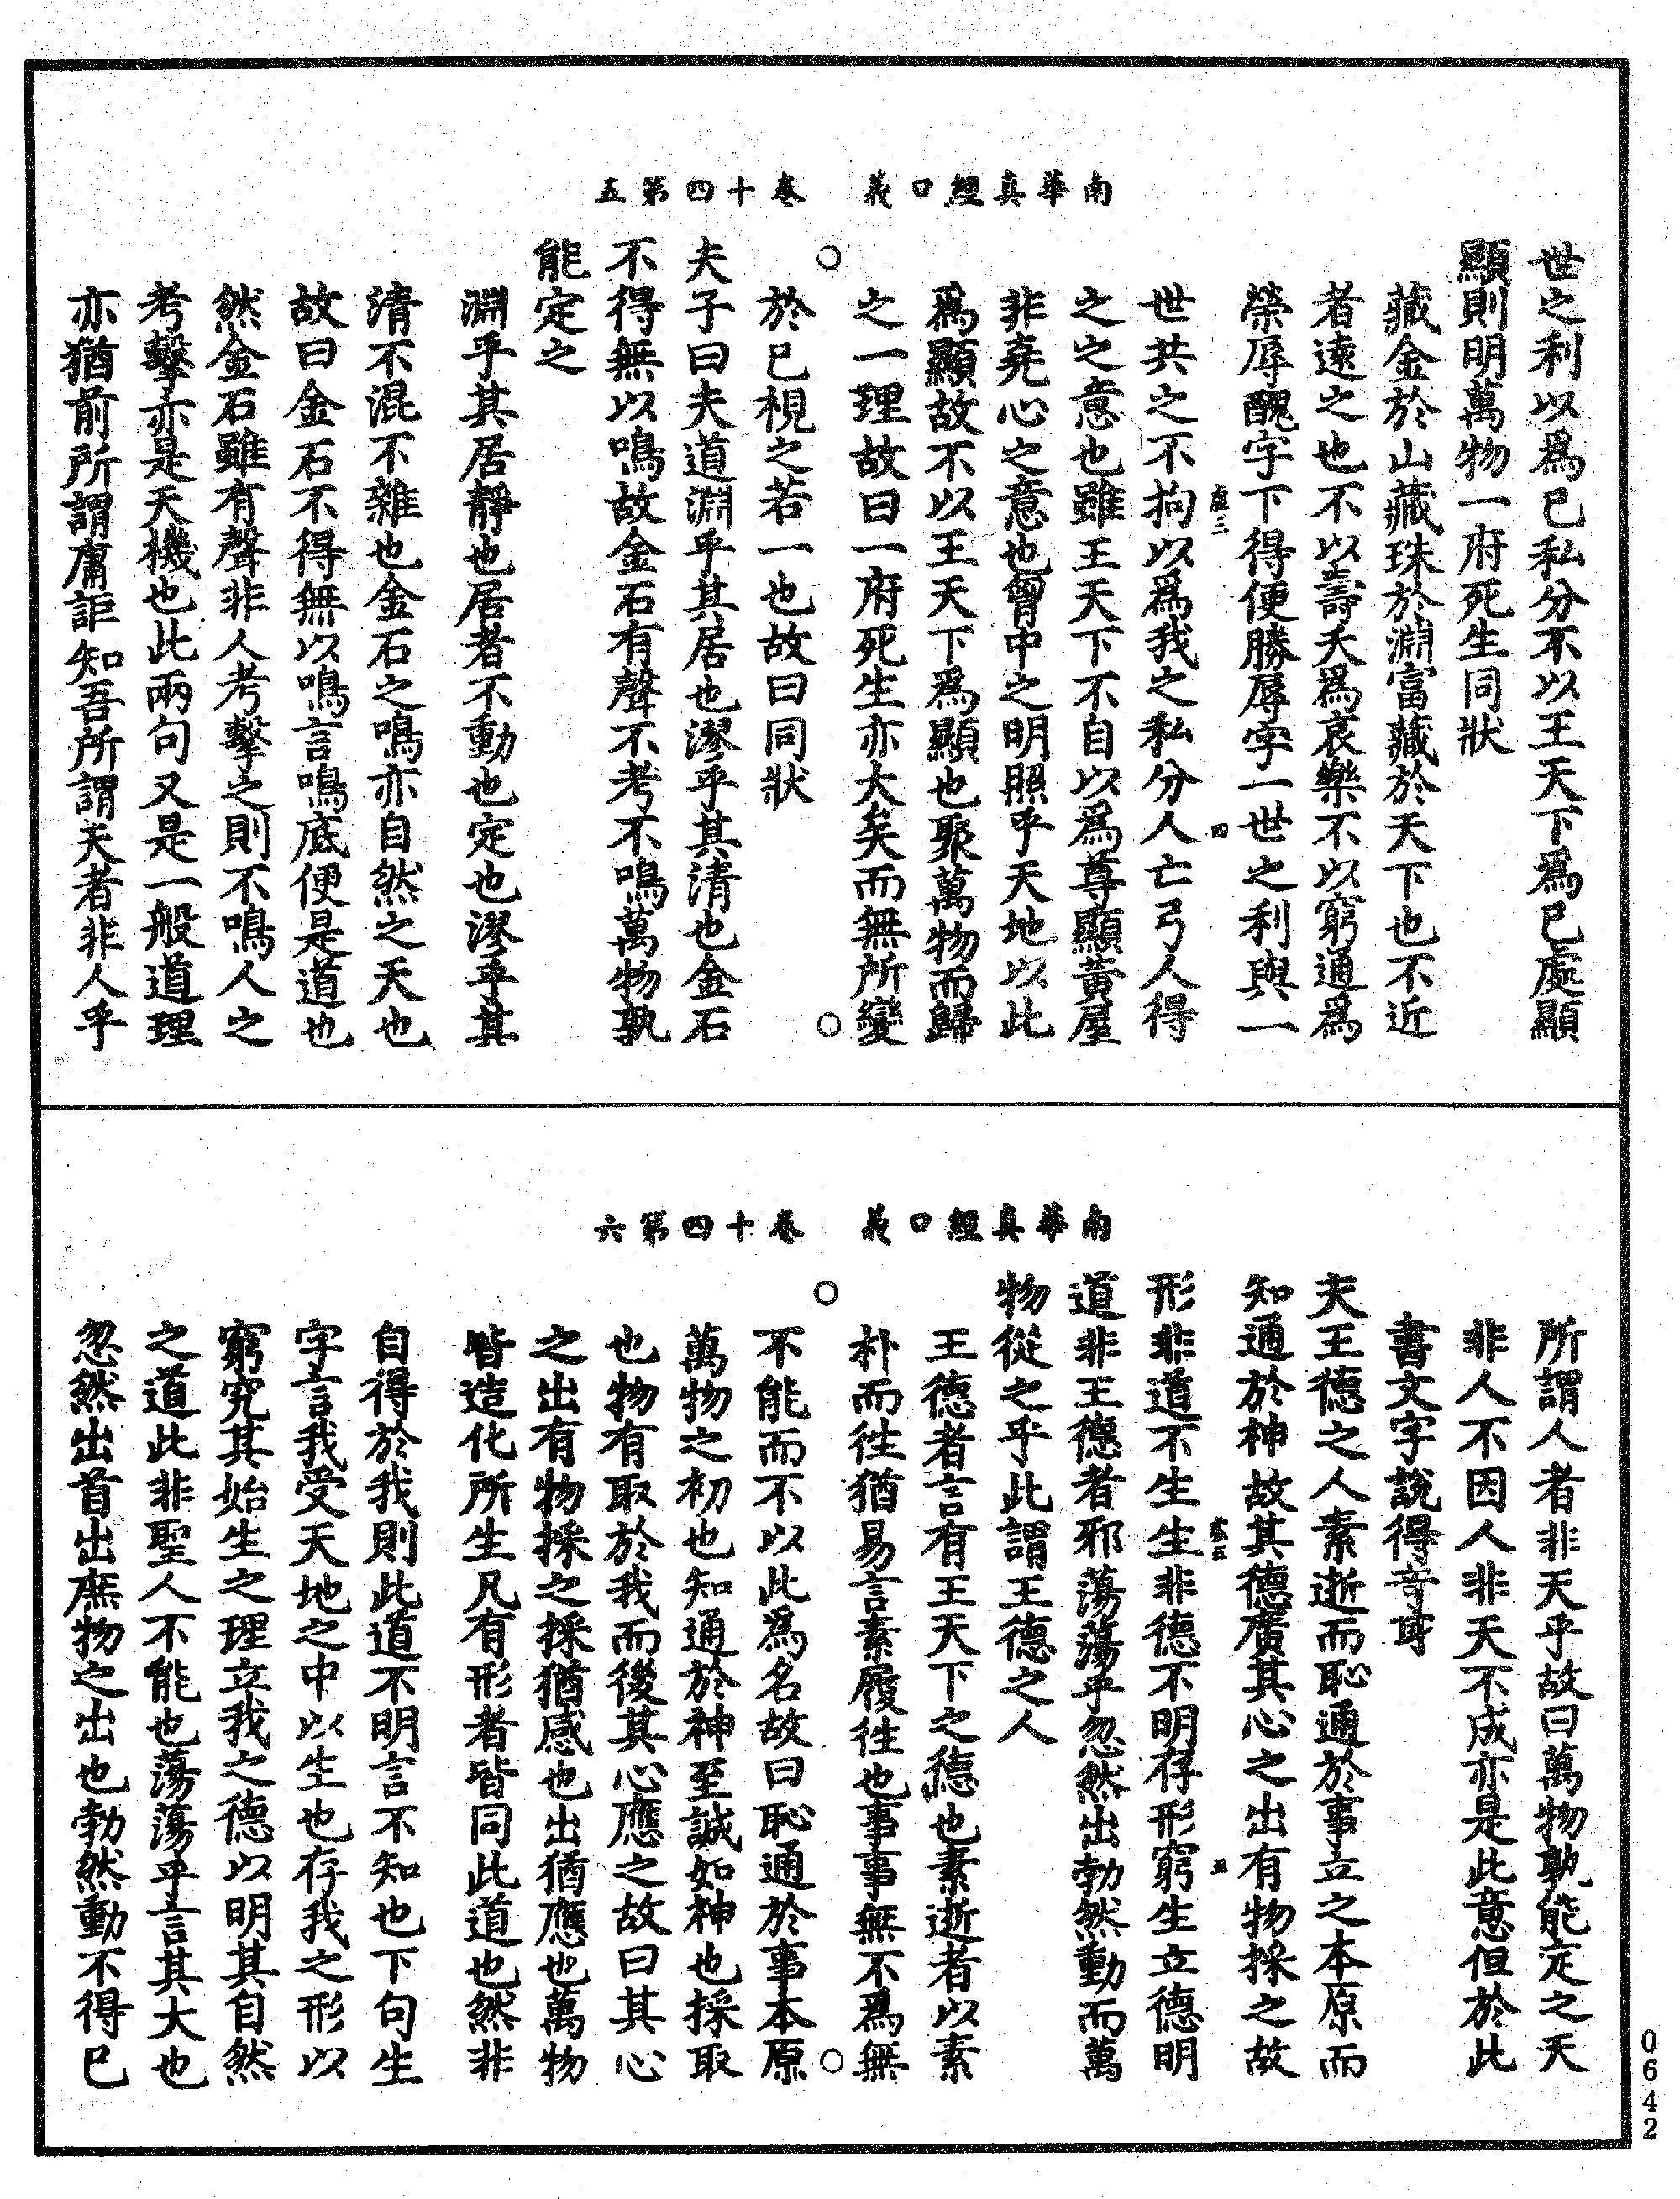 南華真經口義　卷十四第五
世之利以爲己私分不以王天下爲己處顯
顯則明萬物一府死生同狀
藏金於山藏珠於淵富藏於天下也不近
者遠之也不以壽夭爲哀樂不以窮通爲
榮辱醜字下得便勝辱字一世之利與一
虛三
四
世共之不拘以爲我之私分人亡弓人得
之之意也雖王天下不自以爲尊顯黃屋
非堯心之意也曾中之明照乎天地以此
爲顯故不以王天下爲顯也聚萬物而歸
之一理故曰一府死生亦大矣而無所變
於己視之若一也故曰同狀
夫子曰夫道淵乎其居也漻乎其清也金石
不得無以鳴故金石有聲不考不鳴萬物孰
能定之
淵乎其居靜也居者不動也定也漻乎其
清不混不雜也金石之鳴亦自然之天也
故曰金石不得無以鳴言鳴底便是道也
然金石雖有聲非人考擊之則不鳴人之
考擊亦是天機也此兩句又是一般道理
亦猶前所謂庸詎知吾所謂天者非人乎
南華真經口義　卷十四第六
所謂人者非天乎故曰萬物孰能定之天
非人不因人非天不成亦是此意但於此
書文字說得奇耳
夫王德之人素逝而恥通於事立之本原而
知通於神故其德廣其心之出有物採之故
五
形非道不生生非德不明存形窮生立德明
道非王德者邪蕩蕩乎忽然出勃然動而萬
物從之乎此謂王德之人
王德者言有王天下之德也素逝者以素
朴而往猶易言素履往也事事無不爲無
不能而不以此爲名故曰恥通於事本原
萬物之初也知通於神至誠如神也採取
也物有取於我而後其心應之故曰其心
之出有物採之採猶感也出猶應也萬物
皆造化所生凡有形者皆同此道也然非
自得於我則此道不明言不知也下句生
字言我受天地之中以生也存我之形以
窮究其始生之理立我之德以明其自然
之道此非聖人不能也蕩蕩乎言其大也
忽然出首出庶物之出也勃然動不得已
0642